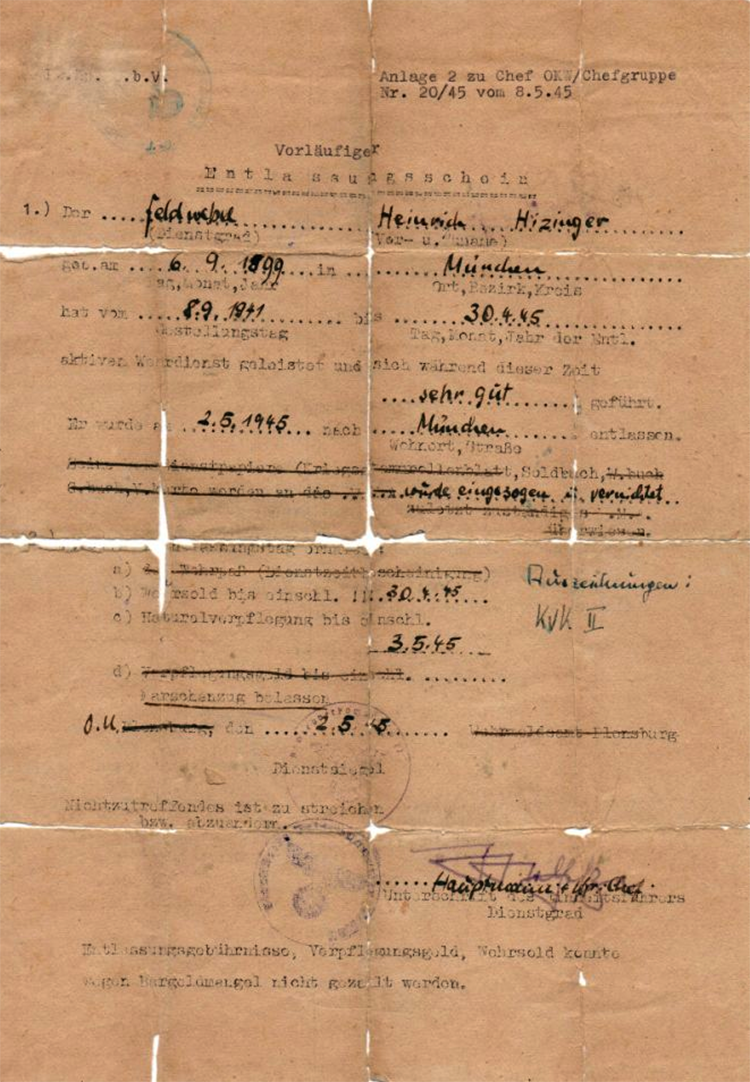 .b.V. Anlage 2 zu Chef OKW/Chefgruppe
Nr. 20/45 vom 8.5.45
Vorläufiger
Entlassungsschein
1.) Der ....Feldwebel.... Heinrich.... Hizinger....
(Dienstgrad) Vor- u. Zuname)
geb.am ....6. 9. 1899 ..in .... München....
Tag,Monat,Jahr Ort,Bezirk,Kreis
hat vom ....8.9. 1941.... bis ....30.4.45....
Gestellungstag Tag,Monat,Jahr der Entl.
aktiven Wehrdienst geleistet und sich während dieser Zeit
....sehr gut.... geführt.
Er wurde am ..2.5.1945... nach ....München.... entlassen.
Wohnort, Straße
Dienstpapiere (Kriegs Soldbuch, W.buch
werden an das wurde eingezogen u. vernichtet..
zuletzt zuständige W.M..
überwiesen.
a) Wehrpaß (Dienstzeitbescheinigung)
b) Wehrsold bis einschl. ...30.4.45...
Auszeichnungen:
c) Naturalverpflegung bis einschl.
KVK II
3.5.45
d) Verpflegungsgeld bis einschl. .........
Marschanzug belassen
O.U. Flensburg, den ......2.5.45...... Wehrmeldeamt Flensburg
Dienstsiegel
Nichtzutreffendes ist zu streichen
bzw. abzuändern.
Hauptmann u.
Unterschrift des Einheitsführers
Dienstgrad
Entlassungsgebührnisse, Verpflegungsgeld, Wehrsold konnte
wegen Bargeldmangel nicht gezahlt werden.